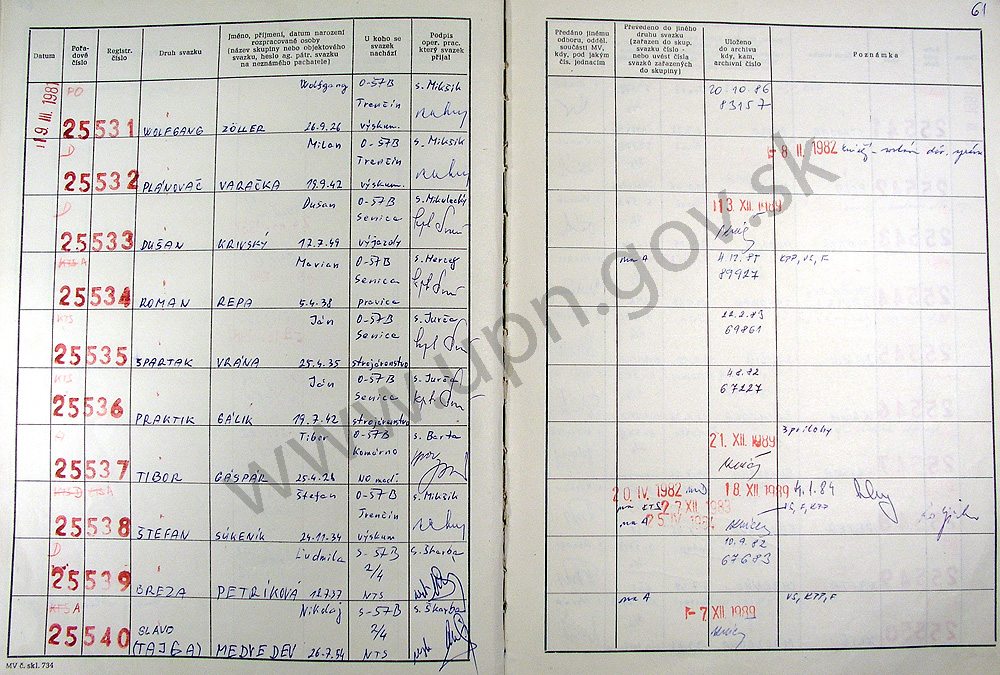 61
Datum
Pořa-
dové
číslo
Registr.
číslo
Druh svazku
Jméno, příjmení, datum narození
rozpracované osoby
(název skupiny nebo objektového
svazku, heslo ag. pátr. svazku
na neznámého pachatele)
U koho se
svazek
nachází
Podpis
oper. prac.
který svazek
přijal
Předáno jinému
odboru, odděl.
součásti MV,
kdy, pod jakým
čís. jednacím
Převedeno do jiného
druhu svazku
(zařazen do skup.
svazku číslo -
nebo uvést čísla
svazků zařazených
do skupiny)
Uloženo
do archivu
kdy, kam,
archivní číslo
Poznámka
19 III. 198
PO
25531
WOLFGANG
Wolfgang
ZÖLLER 26.9.26
O-57B
Trenčín
výskum.
s. Mikšík
20.10.86
83157
D
25532
PLÁNOVAČ
Milan
VARAČKA 19.9.42
O-57B
Trenčín
výskum.
s. Mikšík
8 II. 1982
D
25533
DUŠAN
Dušan
KRIVSKÝ 12.7.49
O-57B
Senica
výjazdy
s. Mikulecký
13. XII. 1989
KTS A
25534
ROMAN
Marian
REPA 5.4.38
O-57B
Senica
pravica
s. Herceg
na A
4.12.85
89927
KTP, VS, F
KTS
25535
SPARTAK
Ján
VRÁNA 25.4.35
O-57B
Senica
strojárenstvo
s. Jurča
22.2.83
69861
KTS
25536
PRAKTIK
Ján
GÁLIK 19.7.42
O-57B
Senica
strojárenstvo
s. Jurča
67227
25537
TIBOR
Tibor
GÁSPÁR 25.4.28
O-57B
Komárno
s. Barta
21. XII. 1989
3 prílohy
KTS D KTS A
25538
ŠTEFAN
Štefan
SÚKENÍK 24.11.34
O-57B
Trenčín
výskum
s. Mikšík
20. IV. 1982 na D
pre KTS 27 XII. 1983
na A 25 IV. 1984
18. XII 1989
4.1.84
VS, F, KTP
D
25539
BREZA
Ľudmila
PETRÍKOVÁ
S-57B
2/4
NTS
s. Škarba
10.9.82
67683
KTS A
25540
SLÁVO
(TAJGA)
Nikolaj
MEDVEDEV 26.7.54
S-57B
2/4
NTS
s. Škarba
na A
7 XII. 1989
VS, KTP, F
MV č. skl. 734
www.upn.gov.sk